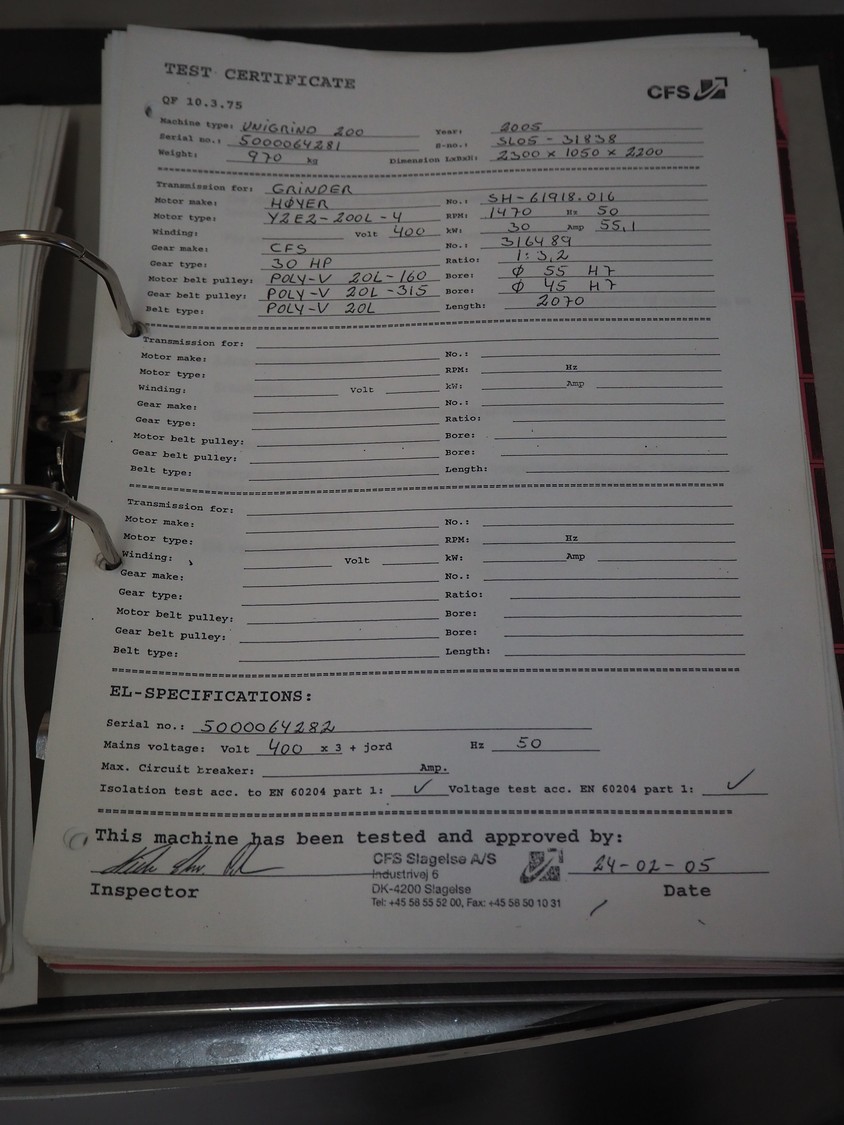 TEST CERTIFICATE
CFS
QF 10.3.75
Machine type: UNIGRIND 200 Year: 2005
Serial no.: 5000064281 S-no.: SL05-31838
Weight: 970 kg Dimension LxBxH: 2300 x 1050 x 2200
Transmission for: GRINDER
Motor make: HØYER No.: SH-61918.016
Motor type: Y2E2-200L-4 RPM: 1470 Hz 50
Winding: Volt 400 kW: 30 Amp 55,1
Gear make: CFS No.: 316489
Gear type: 30 HP Ratio: 1:3,2
Motor belt pulley: POLY-V 20L-160 Bore: Ø 55 H7
Gear belt pulley: POLY-V 20L-315 Bore: Ø 45 H7
Belt type: POLY-V 20L Length: 2070
Transmission for:
Motor make: No.:
Motor type: RPM: Hz
Winding: Volt kW: Amp
Gear make: No.:
Gear type: Ratio:
Motor belt pulley: Bore:
Gear belt pulley: Bore:
Belt type: Length:
Transmission for:
Motor make: No.:
Motor type: RPM: Hz
Winding: Volt kW: Amp
Gear make: No.:
Gear type: Ratio:
Motor belt pulley: Bore:
Gear belt pulley: Bore:
Belt type: Length:
EL-SPECIFICATIONS:
Serial no.: 5000064282
Mains voltage: Volt 400 x 3 + jord Hz 50
Max. Circuit breaker: Amp.
Isolation test acc. to EN 60204 part 1: ✓ Voltage test acc. EN 60204 part 1: ✓
This machine has been tested and approved by:
CFS Slagelse A/S 24-02-05
Industrivej 6
Inspector DK-4200 Slagelse Date
Tel: +45 58 55 52 00, Fax: +45 58 50 10 31